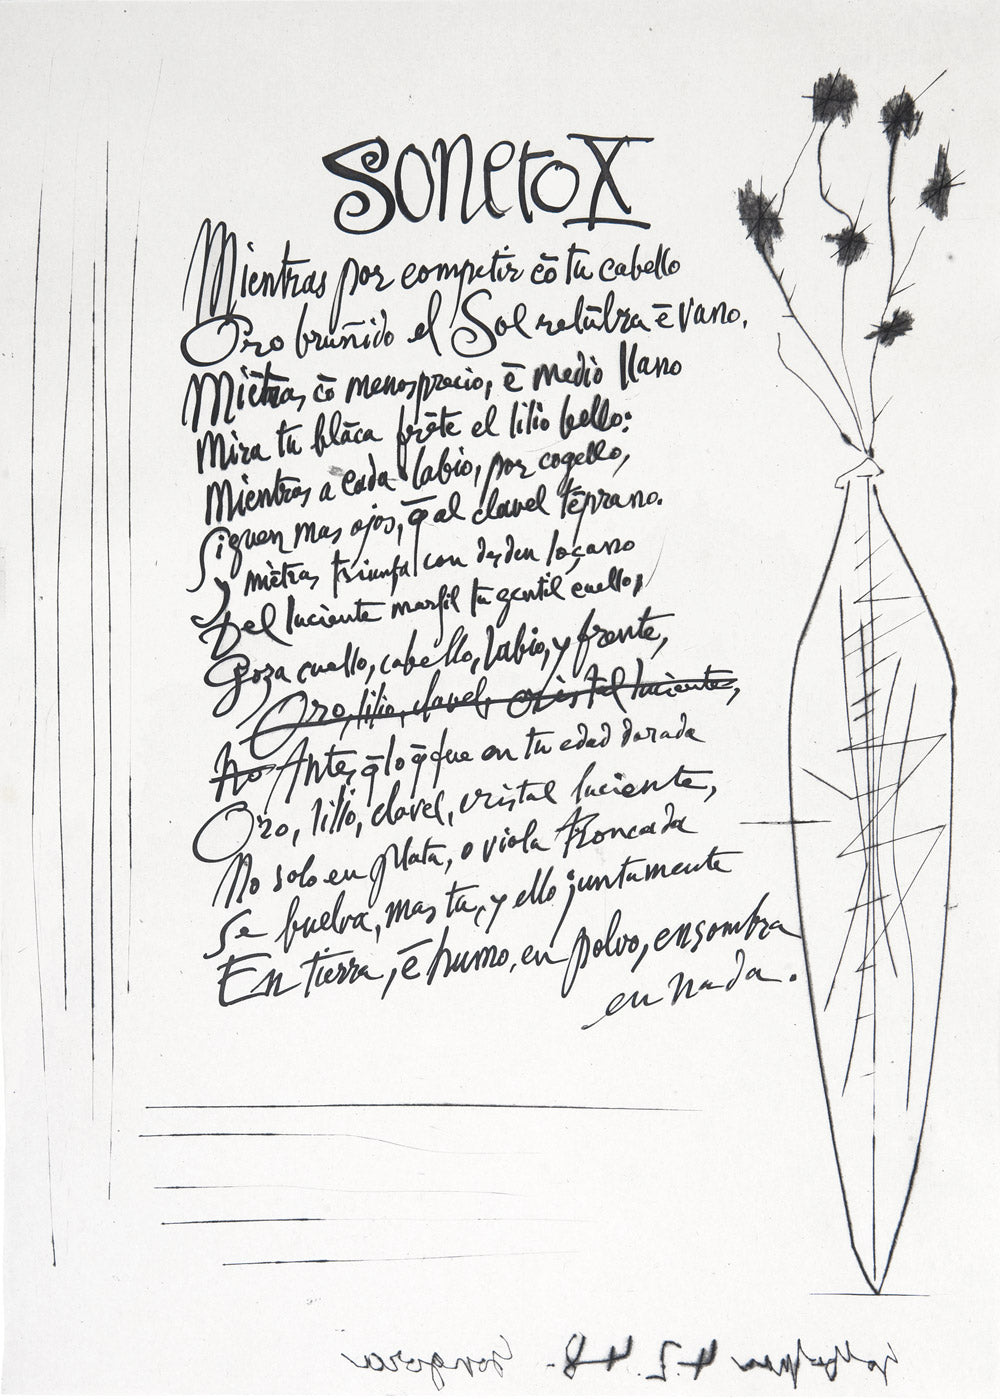 Soneto X
Mientras por competir cō tu cabello
Oro bruñido el Sol relūbra ē vano,
Miētras cō menosprecio, ē medio llano
Mira tu blāca frēte el lilio bello:
Mientras a cada labio, por cogello,
Siguen mas ojos, q̄ al clavel tēprano.
y miētras triunfa con desden loçano
Del luciente marfil tu gentil cuello,
Goza cuello, cabello, labio, y frente,
Oro, lilio, clavel, cristal luciente,
No Antes, q̄ lo q̄ fue en tu edad dorada
Oro, lilio, clavel, cristal luciente,
No solo en plata, o viola troncada
Se buelva, mas tu, y ello juntamente
En tierra, ē humo, en polvo, en sombra
en nada.
4 48. Gongora